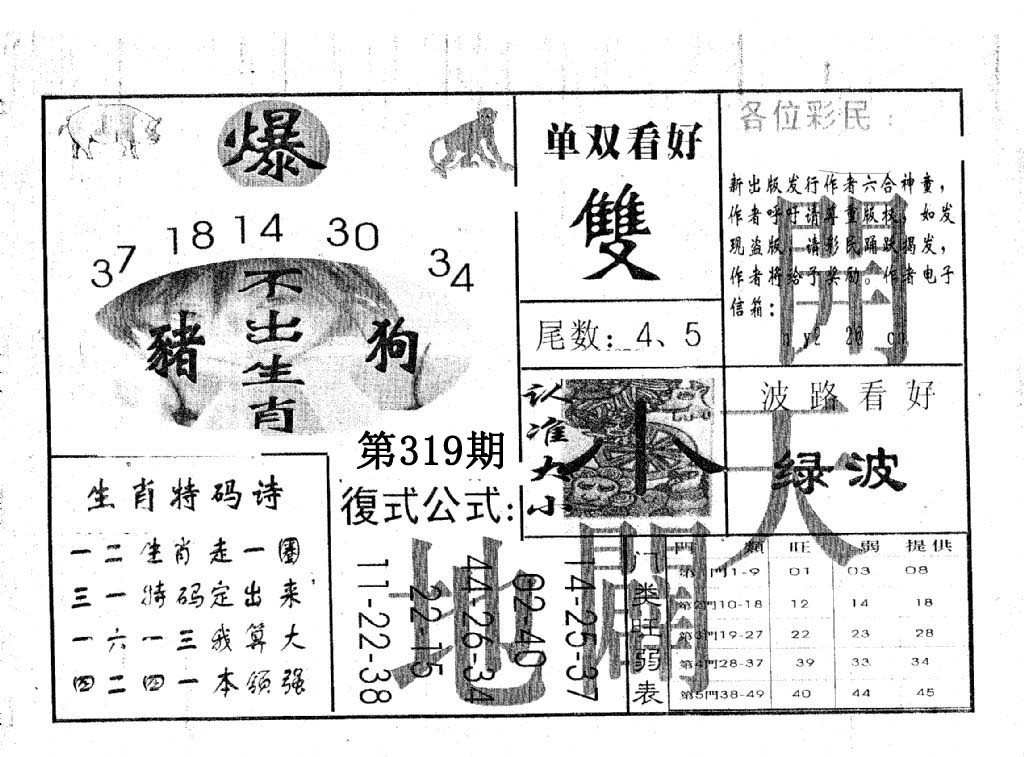 爆
37 18 14 30 34
不出生肖
豬
狗
单双看好
雙
尾数：4、5
各位彩民：
新出版发行作者六合神童，
作者呼吁请尊重版权，如发
现盗版，请彩民踊跃揭发，
作者将给予奖励。作者电子
信箱：
認准大小
小
波路看好
绿波
第319期
復式公式:
11-22-38
22-15
44-26-34
02-40
14-25-37
生肖特码诗
一二生肖走一圈
三一特码定出来
一六一三我算大
四二四一本领强
天
開
地
闢
门类旺弱表
門類 旺 弱 提供
第1門1-9 01 03 08
第2門10-18 12 14 18
第3門19-27 22 23 28
第4門28-37 39 33 34
第5門38-49 40 44 45